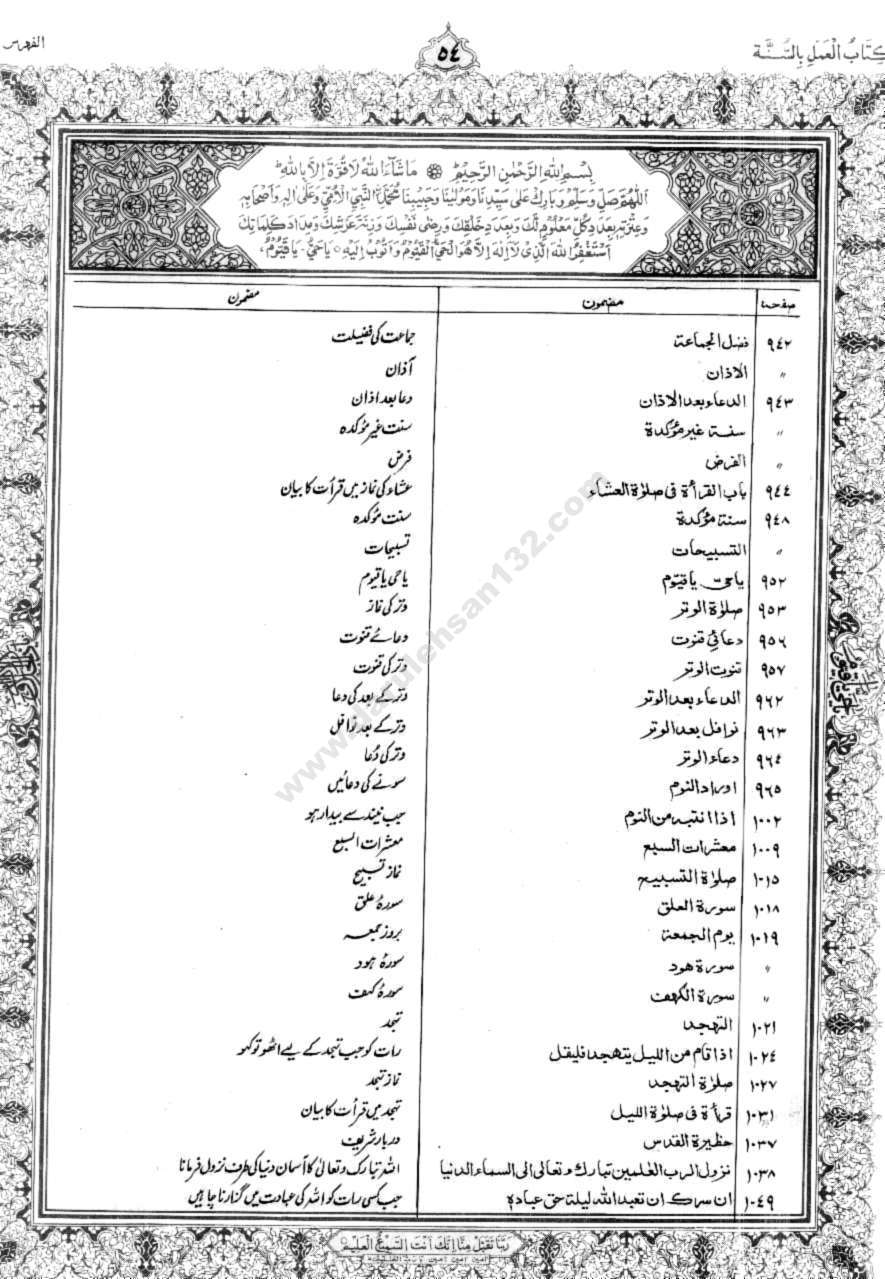 كِتَابُ الْعَمَلِ بِالسُّنَّة ٥٤ الفهرس
بِسْمِ اللهِ الرَّحْمٰنِ الرَّحِيْمِ مَا شَآءَ اللهُ لَا قُوَّةَ اِلَّا بِاللهِ
اَللّٰهُمَّ صَلِّ وَسَلِّمْ وَبَارِكْ عَلٰى سَيِّدِنَا وَمَوْلٰينَا وَحَبِيْبِنَا مُحَمَّدِ النَّبِيِّ الْاُمِّيِّ وَعَلٰى اٰلِهٖ وَاَصْحَابِهٖ
وَعِتْرَتِهٖ بِعَدَدِ كُلِّ مَعْلُوْمٍ لَّكَ وَبِعَدَدِ خَلْقِكَ وَرِضٰى نَفْسِكَ وَزِنَةَ عَرْشِكَ وَمِدَادَ كَلِمَاتِكَ
اَسْتَغْفِرُ اللهَ الَّذِيْ لَا اِلٰهَ اِلَّا هُوَ الْحَيُّ الْقَيُّوْمُ وَاَتُوْبُ اِلَيْهِ ۝ يَا حَيُّ يَا قَيُّوْمُ
صفحہ مضمون مضمون
٩٤٢ فضل الجماعة جماعت کی فضیلت
〃 الاذان آذان
٩٤٣ الدعاء بعد الاذان دعا بعد اذان
〃 سنة غير مؤكدة سنت غیر مؤکدہ
〃 الفرض فرض
٩٤٤ باب القرأة فى صلوٰة العشاء عشاء کی نماز میں قرأت کا بیان
٩٤٨ سنة مؤكدة سنت مؤکدہ
〃 التسبيحات تسبیحات
٩٥٢ ياحىّ ياقيّوم یاحی یاقیوم
٩٥٣ صلوٰة الوتر وتر کی نماز
٩٥٦ دعائے قنوت دعائے قنوت
٩٥٧ قنوت الوتر وتر کی قنوت
٩٦٢ الدعاء بعد الوتر وتر کے بعد کی دعا
٩٦٣ نوافل بعد الوتر وتر کے بعد نوافل
٩٦٤ دعاء الوتر وتر کی دُعا
٩٦٥ اوراد النوم سونے کی دعائیں
١٠٠٢ اذا انتبه من النوم جب نیند سے بیدار ہو
١٠٠٩ معشرات السبع معشرات السبع
١٠١٥ صلوٰة التسبيح نماز تسبیح
١٠١٨ سورة العلق سورۂ علق
١٠١٩ يوم الجمعة بروز جمعہ
〃 سورة هود سورۂ ہود
〃 سورة الكهف سورۂ کہف
١٠٢١ التهجد تہجد
١٠٢٤ اذا قام من الليل يتهجد فليقل رات کو جب تہجد کے لیے اٹھو تو کہو
١٠٢٧ صلوٰة التهجد نماز تہجد
١٠٣١ قرأة فى صلوٰة الليل تہجد میں قرأت کا بیان
١٠٣٧ حظيرة القدس دربار شریف
١٠٣٨ نزول الرب العٰلمين تبارك وتعالى الى السماء الدنيا اللہ تبارک وتعالیٰ کا آسمان دنیا کی طرف نزول فرمانا
١٠٤٩ ان سرك ان تعبد الله ليلة حق عبادة جب کسی رات کو اللہ کی عبادت میں گزارنا چاہیں
رَبَّنَا تَقَبَّلْ مِنَّا اِنَّكَ اَنْتَ السَّمِيْعُ الْعَلِيْمُ